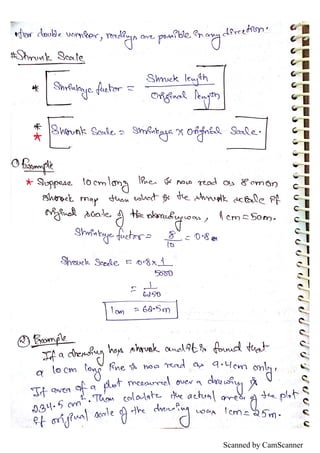 For double vernier, readings are possible in any direction.
# Shrunk Scale
* Shrinkage factor = Shrunk length / Original length
* * Shrunk Scale = Shrinkage × Original Scale.
① Example
* Suppose 10cm long line is now read as 8cm on
shrunk map then what is the shrunk scale if
original scale of the drawing was, 1cm = 50m.
Shrinkage factor = 8/10 = 0.8
Shrunk Scale = 0.8 × 1/5000
= 1/6250
1cm = 62.5m
② Example
If a drawing has shrunk and it is found that
a 10cm long line is now read as 9.4cm only,
If area of a plot measured over a drawing is
234.5 cm². Then calculate the actual area of the plot
if original scale of the drawing was 1cm = 25m.
Scanned by CamScanner